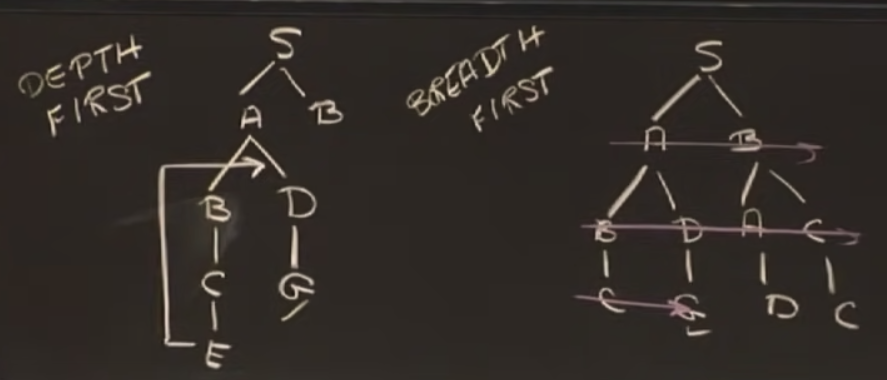 DEPTH
FIRST
S
A B
B D
C G
E
BREADTH
FIRST
S
A B
B D A C
C G D C